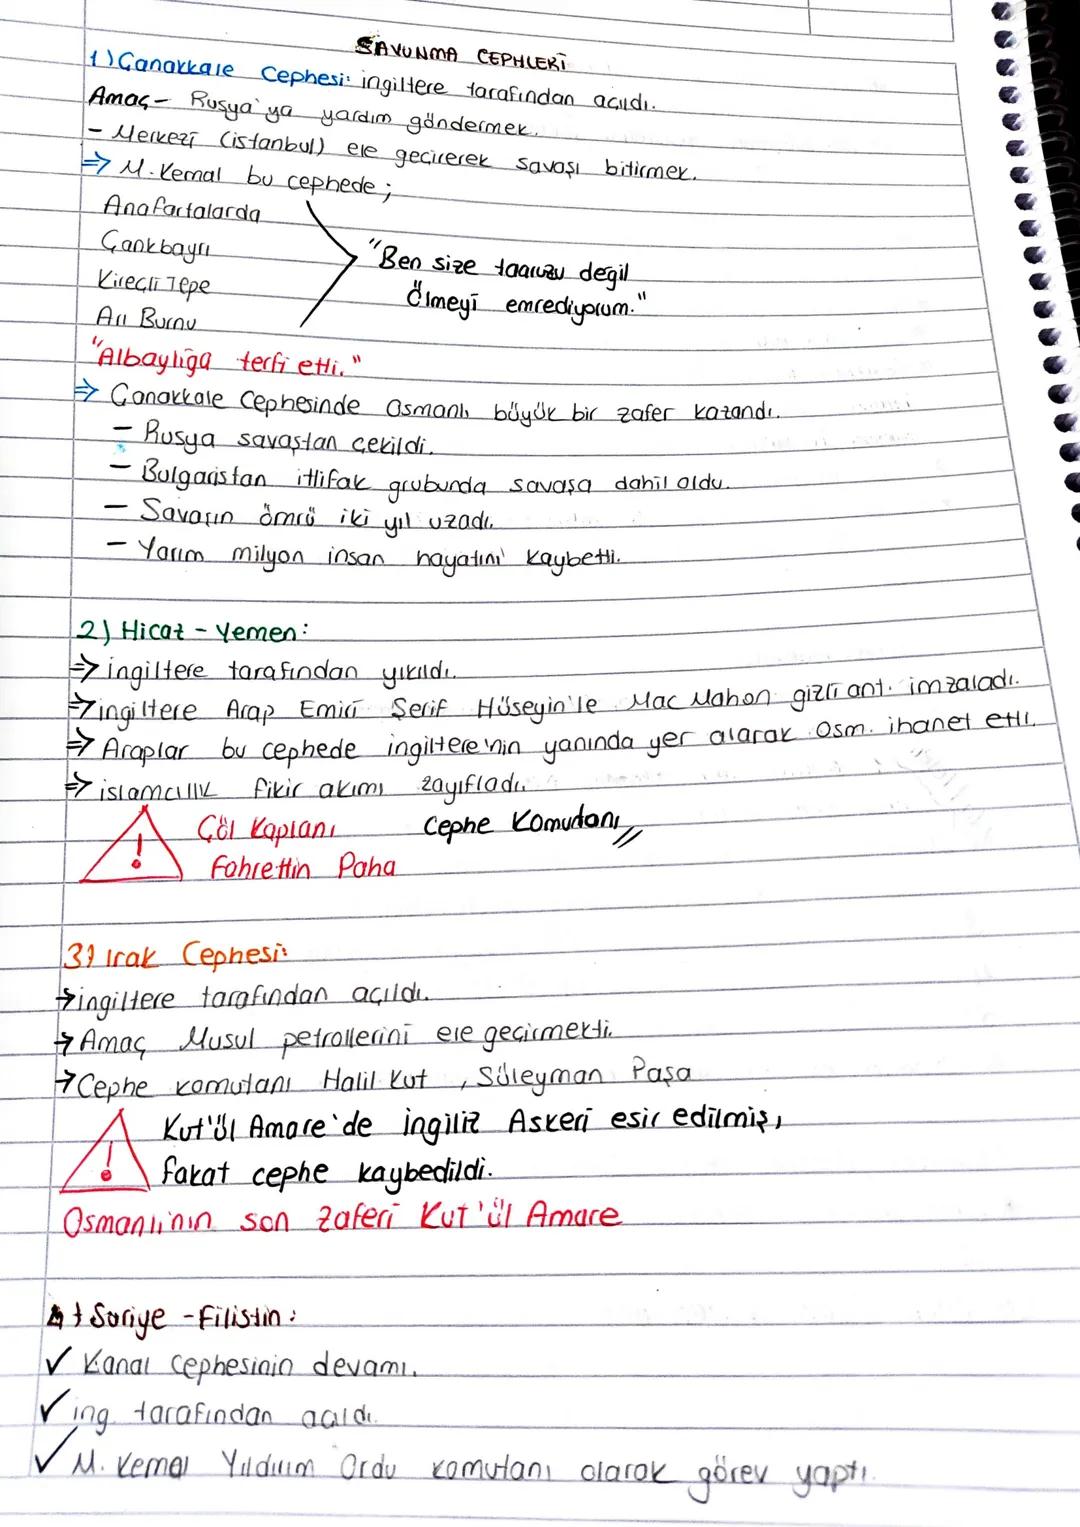 SAVUNMA CEPHLERİ
1) Çanakkale Cephesi: ingiltere tarafından açıldı.
Amaç- Rusya'ya yardım göndermek.
- Merkezi (istanbul) ele geçirerek savaşı bitirmek.
⇒ M.Kemal bu cephede;
Anafartalarda
Çankbayrı
Kireçli Tepe
Arı Burnu
"Ben size taaruzu değil
ölmeyi emrediyorum."
"Albaylığa terfi etti."
⇒ Çanakkale Cephesinde Osmanlı büyük bir zafer kazandı.
- Rusya savaştan çekildi.
- Bulgaristan ittifak grubunda savaşa dahil oldu.
- Savaşın ömrü iki yıl uzadı.
- Yarım milyon insan hayatını kaybetti.
2) Hicaz - Yemen:
⇒ ingiltere tarafından yıkıldı.
⇒ ingiltere Arap Emiri Şerif Hüseyin'le Mac Mahon gizli ant. imzaladı.
⇒ Araplar bu cephede ingiltere'nin yanında yer alarak Osm. ihanet etti.
⇒ islamcılık fikir akımı zayıfladı.
! Çöl Kaplanı Cephe Komutanı
Fahrettin Paha
3) Irak Cephesi:
→ ingiltere tarafından açıldı.
→ Amaç Musul petrollerini ele geçirmekti.
→ Cephe komutanı Halil Kut , Süleyman Paşa
! Kut'ül Amare'de ingiliz Askeri esir edilmiş,
fakat cephe kaybedildi.
Osmanlı'nın son zaferi Kut'ül Amare
4) Suriye - Filistin:
✓ Kanal Cephesinin devamı.
✓ ing. tarafından açıldı.
✓ M. Kemal Yıldırım Ordu komutanı olarak görev yaptı.